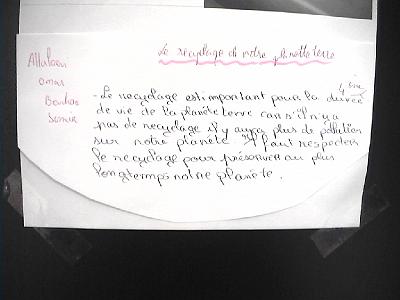 Le recyclage de notre planette terre
omar
Samia
4ème
- Le recyclage est important pour la durée
de vie de la planète terre car s'il n'y a
pas de recyclage il y aura plus de pollution
sur notre planète. Il faut respecter
le recyclage pour préserver au plus
longtemps notre planète.